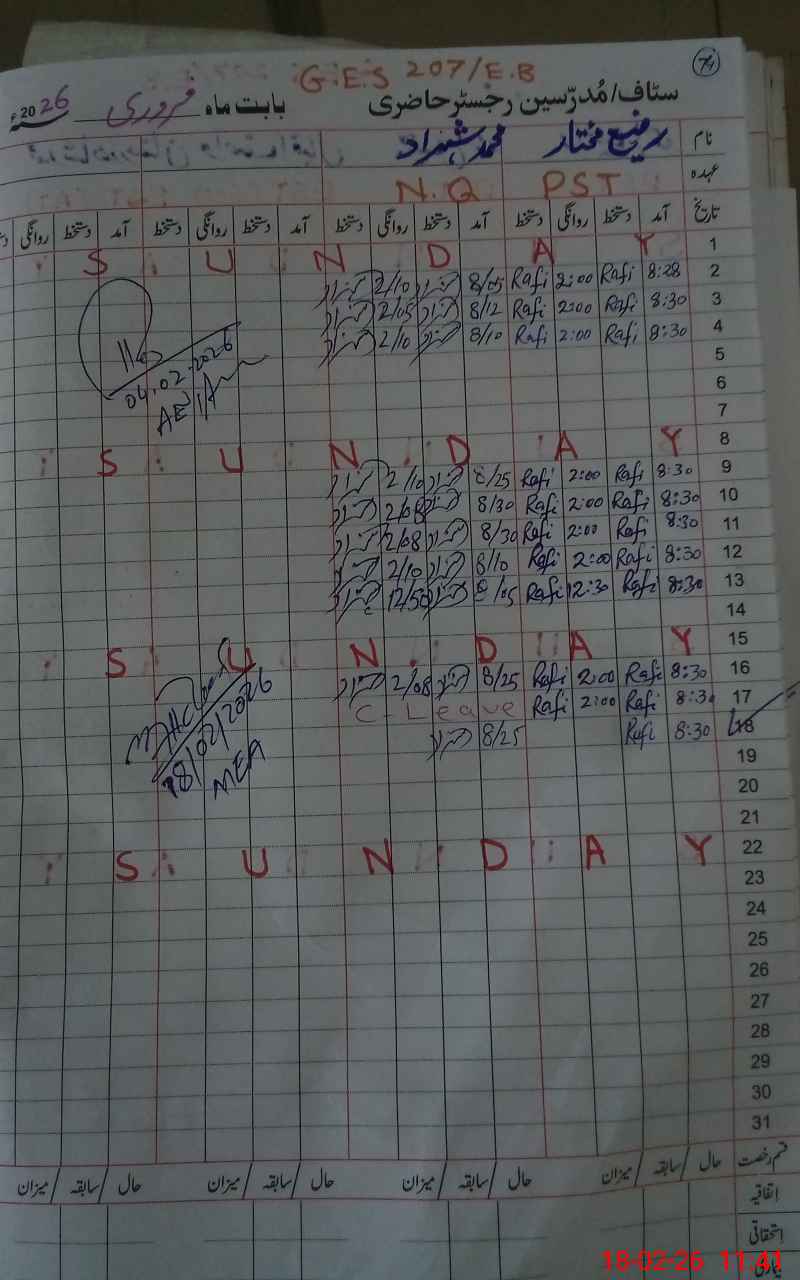 G.E.S 207/E.B
74
سٹاف/مُدرّسین رجسٹر حاضری بابت ماہ فروری 2026ء
نام رفیع مختار محمد شہزاد
عہدہ PST N.Q
تاریخ آمد دستخط روانگی دستخط آمد دستخط روانگی دستخط آمد دستخط روانگی دستخط آمد دستخط روانگی
1 S U N D A Y
2 8:28 Rafi 2:00 Rafi 8/05 2/10
3 8:30 Rafi 2:00 Rafi 8/12 2/05
4 8:30 Rafi 2:00 Rafi 8/10 2/10
04.02.2026
5
6
7
8 S U N D A Y
9 8:30 Rafi 2:00 Rafi 8/25 2/10
10 8:30 Rafi 2:00 Rafi 8/30 2/08
11 8:30 Rafi 2:00 Rafi 8/30 2/08
12 8:30 Rafi 2:00 Rafi 8/10 2/10
13 8:30 Rafi 12:30 Rafi 8/05 12/50
14
15 S U N D A Y
16 8:30 Rafi 2:00 Rafi 8/25 2/08
17 8:30 Rafi 2:00 Rafi C-Leave
18 8:30 Rafi 8/25
18/02/2026
MEA
19
20
21
22 S U N D A Y
23
24
25
26
27
28
29
30
31
قسم رخصت حال / سابقہ / میزان حال / سابقہ / میزان حال / سابقہ / میزان حال / سابقہ / میزان
اتفاقیہ
استحقاقی
بیماری
18-02-26 11:41